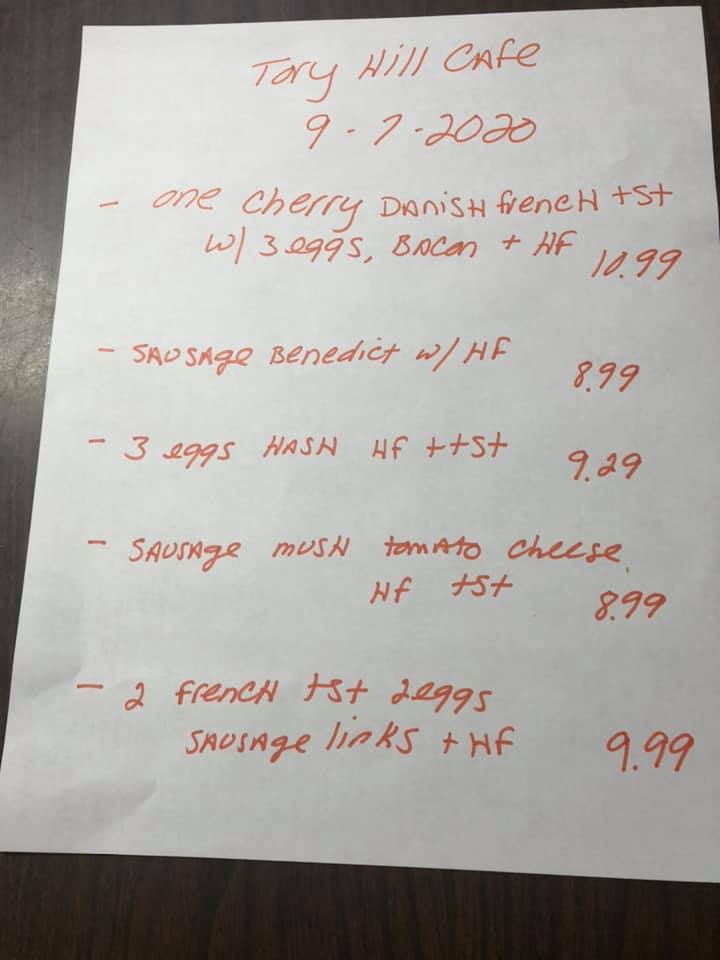 Tory Hill Cafe
9-7-2020
- one cherry Danish french tst
w/ 3 eggs, Bacon + Hf 10.99
- Sausage Benedict w/ HF 8.99
- 3 eggs Hash Hf + tst 9.29
- Sausage mush tomato cheese
Hf tst 8.99
- 2 french tst 2 eggs
Sausage links + Hf 9.99